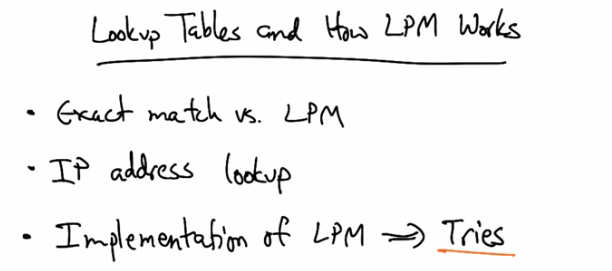 Lookup Tables and How LPM Works
• Exact match vs. LPM
• IP address lookup
• Implementation of LPM ⇒ Tries